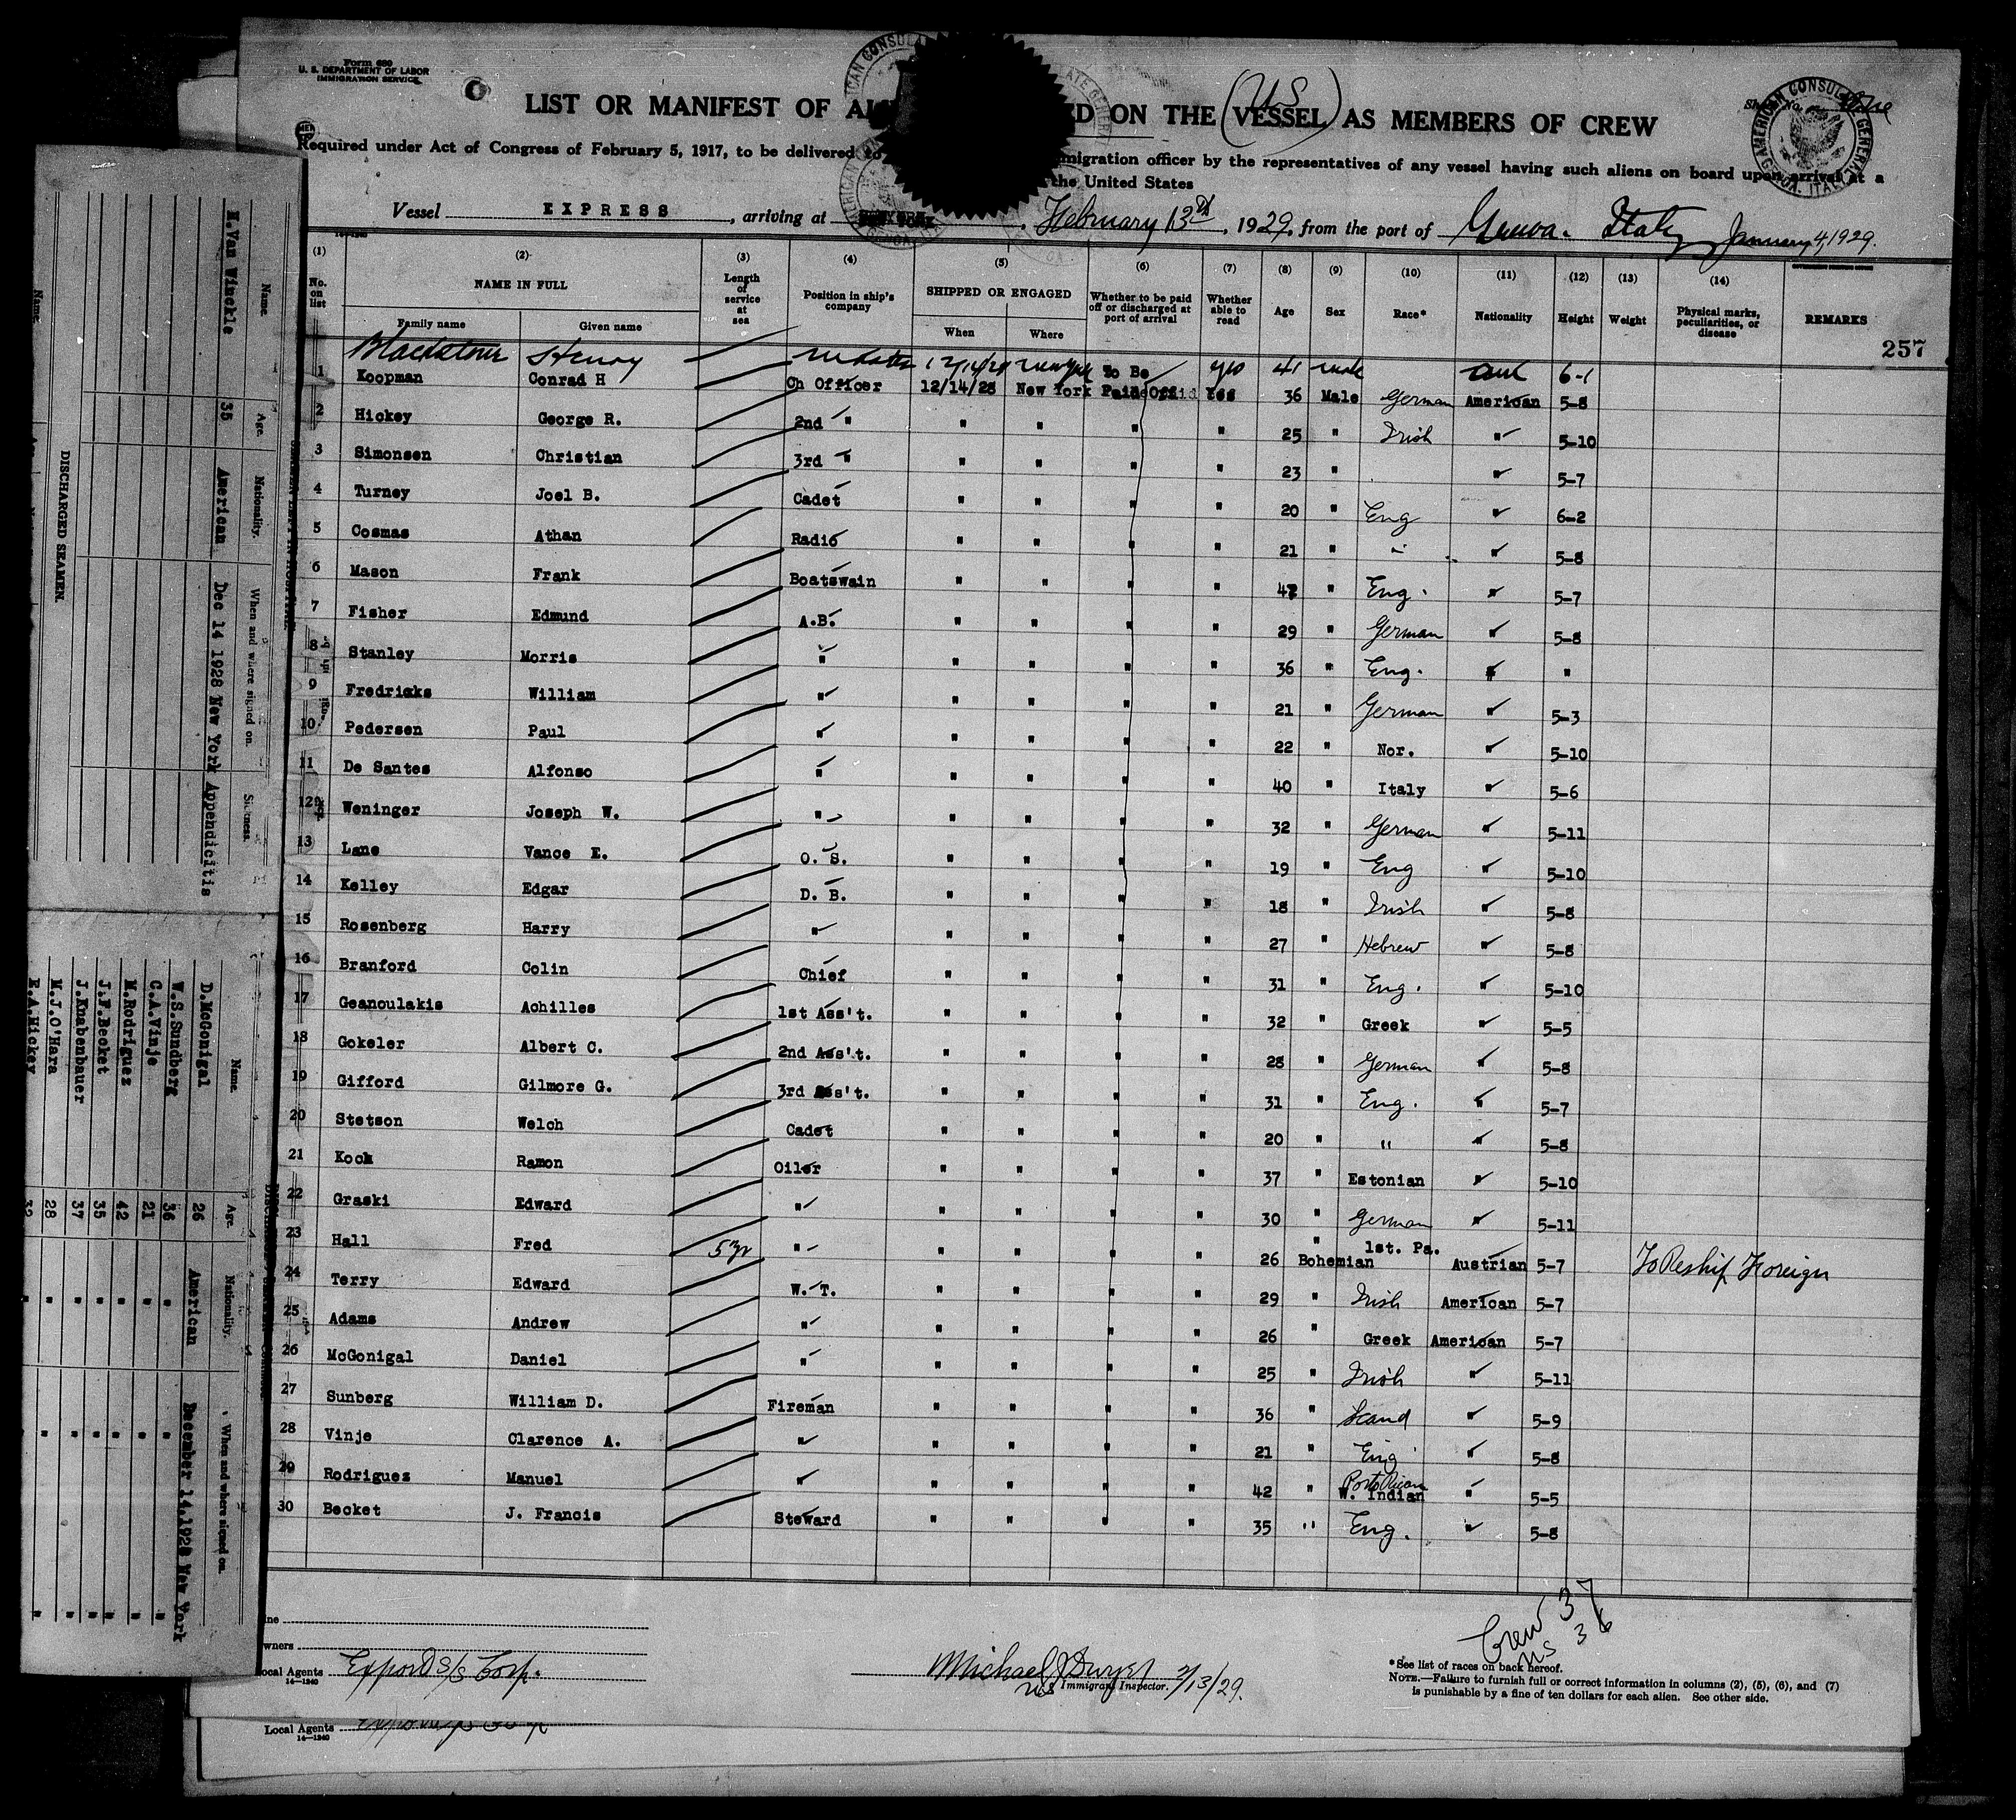 Form 680
U. S. DEPARTMENT OF LABOR
IMMIGRATION SERVICE
LIST OR MANIFEST OF ON THE (VESSEL) AS MEMBERS OF CREW
(US)
Required under Act of Congress of February 5, 1917, to be delivered to immigration officer by the representatives of any vessel having such aliens on board upon arrival at a
the United States
AMERICAN CONSULATE GENERAL
GENOA. ITALY
Vessel EXPRESS, arriving at February 13th, 1929, from the port of Genoa. Italy January 4, 1929.
(1) (2) (3) (4) (5) (6) (7) (8) (9) (10) (11) (12) (13) (14)
No. on list NAME IN FULL Length of service at sea Position in ship's company SHIPPED OR ENGAGED Whether to be paid off or discharged at port of arrival Whether able to read Age Sex Race* Nationality Height Weight Physical marks, peculiarities, or disease REMARKS
Family name Given name When Where
257
Blackstone Henry Master New York yes 41 male 6-1
1 Koopman Conrad H Ch Officer 12/14/28 New York To Be Paid Off Yes 36 Male German American 5-8
2 Hickey George R. 2nd " " " " " 25 " Irish " 5-10
3 Simonsen Christian 3rd " " " " " 23 " " 5-7
4 Turney Joel B. Cadet " " " " 20 " Eng " 6-2
5 Cosmas Athan Radio " " " " 21 " " 5-8
6 Mason Frank Boatswain " " " " 42 " Eng. " 5-7
7 Fisher Edmund A.B. " " " " 29 " German " 5-8
8 Stanley Morris " " " " " 36 " Eng. " "
9 Fredricks William " " " " " 21 " German " 5-3
10 Pedersen Paul " " " " " 22 " Nor. " 5-10
11 De Santes Alfonso " " " " " 40 " Italy " 5-6
12 Weninger Joseph W. " " " " " 32 " German " 5-11
13 Lane Vance E. O. S. " " " " 19 " Eng " 5-10
14 Kelley Edgar D. B. " " " " 18 " Irish " 5-8
15 Rosenberg Harry " " " " " 27 " Hebrew " 5-8
16 Branford Colin Chief " " " " 31 " Eng. " 5-10
17 Geanoulakis Achilles 1st Ass't. " " " " 32 " Greek " 5-5
18 Gokeler Albert C. 2nd Ass't. " " " " 28 " German " 5-8
19 Gifford Gilmore G. 3rd Ass't. " " " " 31 " Eng. " 5-7
20 Stetson Welch Cadet " " " " 20 " " " 5-8
21 Kook Ramon Oiler " " " " 37 " Estonian " 5-10
22 Graski Edward " " " " " 30 " German " 5-11
23 Hall Fred 5 yr " " " " " 26 " 1st. Pa. Bohemian Austrian 5-7 To Reship Foreign
24 Terry Edward W. T. " " " " 29 " Irish American 5-7
25 Adams Andrew " " " " " 26 " Greek American 5-7
26 McGonigal Daniel " " " " " 25 " Irish " 5-11
27 Sunberg William D. Fireman " " " " 36 " Scand " 5-9
28 Vinje Clarence A. " " " " " 21 " Eng " 5-8
29 Rodriguez Manuel " " " " " 42 " Porto Rican W. Indian " 5-5
30 Becket J. Francis Steward " " " " 35 " Eng. " 5-8
Crew 37
US 36
owners
Local Agents Export S/S Corp.
14—1240
Michael J Dwyer 2/13/29.
Immigrant Inspector.
*See list of races on back hereof.
NOTE.—Failure to furnish full or correct information in columns (2), (5), (6), and (7)
is punishable by a fine of ten dollars for each alien. See other side.
Local Agents
14—1240
Name Age. Nationality. When and where signed on. Sickness.
H.Van Winckle 35 American Dec 14 1928 New York Appendicitis
DISCHARGED SEAMEN.
Name. Age. Nationality. When and where signed on.
D.McGonigal 26 American December 14.1928 New York
W.S.Sundberg 36 " " "
C.A.Vinje 21 " " "
M.Rodriguez 42 " " "
J.F.Becket 35 " " "
J.Knabenbauer 37 " " "
M.J.O'Hara 28 " "
R.A.Hickey